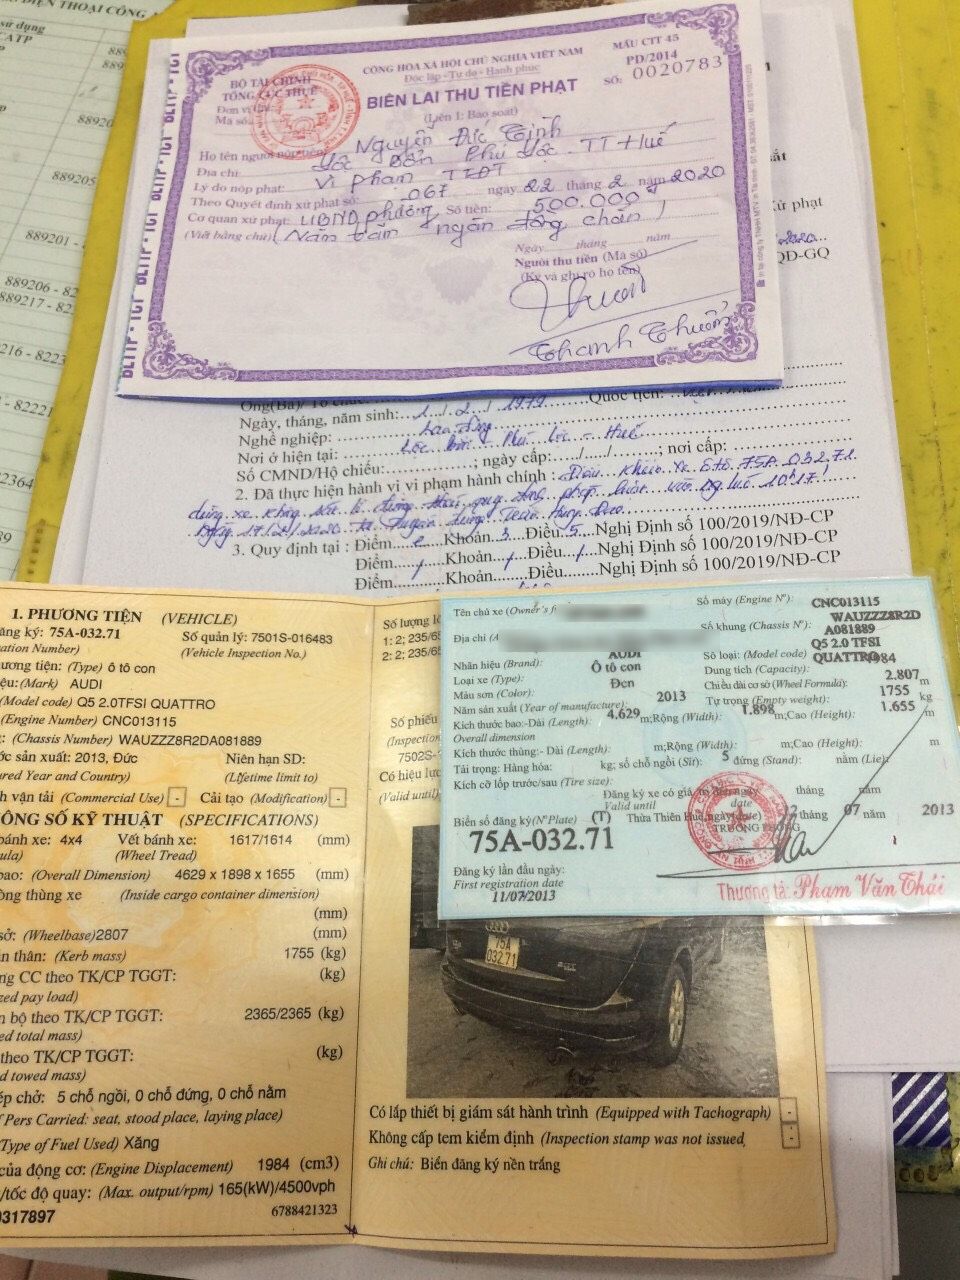 ĐIỆN THOẠI CÔNG
sử dụng
889206 - 82
889217 - 82
216 - 8223
- 82221
82364
CỘNG HÒA XÃ HỘI CHỦ NGHĨA VIỆT NAM
Độc lập - Tự do - Hạnh phúc
MẪU CTT 45
PD/2014
SỐ: 0020783
BỘ TÀI CHÍNH
TỔNG CỤC THUẾ
BIÊN LAI THU TIỀN PHẠT
(Liên 1: Báo soát)
Đơn vị
Mã số
Họ tên người nộp tiền: Nguyễn Đức Tình
Địa chỉ: Lộc Bổn Phú Lộc TT Huế
Lý do nộp phạt: Vi phạm TTĐT
Theo Quyết định xử phạt số: 067 ngày 22 tháng 2 năm 2020
Cơ quan xử phạt: UBND phường Số tiền: 500.000
(Viết bằng chữ) (Năm trăm ngàn đồng chẵn)
Ngày tháng năm
Người thu tiền (Mã số)
(Ký và ghi rõ họ tên)
BLTTP - TCT BLTTP - TCT BLTTP - TCT
xử phạt
2020
QĐ-GQ
Ông(Bà)/ Tổ chức Quốc tịch:
Ngày, tháng, năm sinh: 1/2/1979
Nghề nghiệp: Lao động
Nơi ở hiện tại: Lộc Bổn - Phú Lộc - Huế
Số CMND/Hộ chiếu: ; ngày cấp:..../...../.....; nơi cấp:
2. Đã thực hiện hành vi vi phạm hành chính: Điều khiển xe ô tô 75A 032.71
dừng xe không pháp luật vào lúc 10h17'
Ngày 17/2/2020
3. Quy định tại : Điểm e Khoản 3 Điều 5 Nghị Định số 100/2019/NĐ-CP
Điểm / Khoản / Điều / Nghị Định số 100/2019/NĐ-CP
Điểm / Khoản Điều Nghị Định số 100/2019/NĐ-CP
1. PHƯƠNG TIỆN (VEHICLE)
ăng ký: 75A-032.71 Số quản lý: 7501S-016483
ation Number) (Vehicle Inspection No.)
ương tiện: (Type) Ô tô con
ệu: (Mark) AUDI
Model code) Q5 2.0TFSI QUATTRO
(Engine Number) CNC013115
: (Chassis Number) WAUZZZ8R2DA081889
ớc sản xuất: 2013, Đức Niên hạn SD:
ured Year and Country) (Lifetime limit to)
h vận tải (Commercial Use) - Cải tạo (Modification) -
ÔNG SỐ KỸ THUẬT (SPECIFICATIONS)
bánh xe: 4x4 Vết bánh xe: 1617/1614 (mm)
ula) (Wheel Tread)
bao: (Overall Dimension) 4629 x 1898 x 1655 (mm)
òng thùng xe (Inside cargo container dimension)
(mm)
sở: (Wheelbase)2807 (mm)
ản thân: (Kerb mass) 1755 (kg)
ng CC theo TK/CP TGGT: (kg)
zed pay load)
n bộ theo TK/CP TGGT: 2365/2365 (kg)
ed total mass)
theo TK/CP TGGT: (kg)
d towed mass)
ép chở: 5 chỗ ngồi, 0 chỗ đứng, 0 chỗ nằm
f Pers Carried: seat, stood place, laying place)
(Type of Fuel Used) Xăng
của động cơ: (Engine Displacement) 1984 (cm3)
/tốc độ quay: (Max. output/rpm) 165(kW)/4500vph
0317897 6788421323
Số lượng l
1: 2; 235/65
2: 2; 235/65
Số phiếu
(Inspection
7502S-
Có hiệu lực
(Valid until)
Tên chủ xe (Owner's f
Địa chỉ (A
Nhãn hiệu (Brand): AUDI
Loại xe (Type): Ô tô con
Màu sơn (Color): Đen
Năm sản xuất (Year of manufacture): 2013
Số máy (Engine Nº): CNC013115
Số khung (Chassis Nº): WAUZZZ8R2D
A081889
Số loại: (Model code) Q5 2.0 TFSI
QUATTRO
Dung tích (Capacity): 1984
Chiều dài cơ sở (Wheel Formula): 2.807 m
Tự trọng (Empty weight): 1755 kg
Kích thước bao:-Dài (Length): 4.629 m;Rộng (Width): 1.898 m;Cao (Height): 1.655 m
Overall dimension
Kích thước thùng:- Dài (Length): m;Rộng (Width): m;Cao (Height): m
Tải trọng: Hàng hóa: kg; số chỗ ngồi (Sit): 5 đứng (Stand): nằm (Lie):
Kích cỡ lốp trước/sau (Tire size):
Đăng ký xe có giá trị đến ngày tháng năm
Valid until date
Biển số đăng ký (NºPlate) (T) Thừa Thiên Huế, ngày 12 tháng 07 năm 2013
75A-032.71
TRƯỞNG PHÒNG
Đăng ký lần đầu ngày:
First registration date
11/07/2013
Thượng tá: Phạm Văn Thái
75A
032.71
Có lắp thiết bị giám sát hành trình (Equipped with Tachograph) -
Không cấp tem kiểm định (Inspection stamp was not issued) -
Ghi chú: Biển đăng ký nền trắng